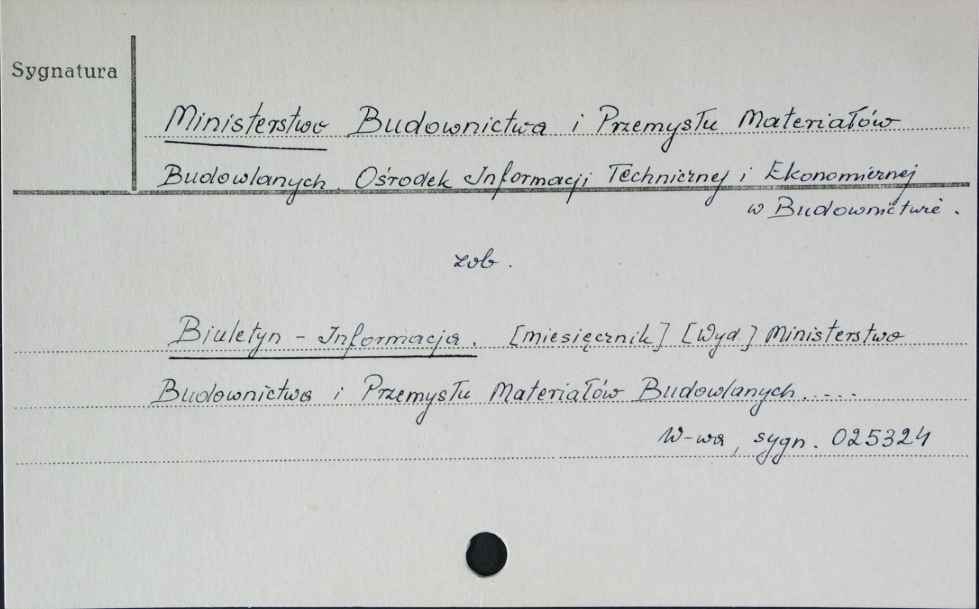 Sygnatura
Ministerstwo Budownictwa i Przemysłu Materiałów
Budowlanych. Ośrodek Informacji Technicznej i Ekonomicznej
w Budownictwie.
zob.
Biuletyn - Informacja. [miesięcznik] [Wyd.] Ministerstwo
Budownictwa i Przemysłu Materiałów Budowlanych.....
W-wa, sygn. 025324